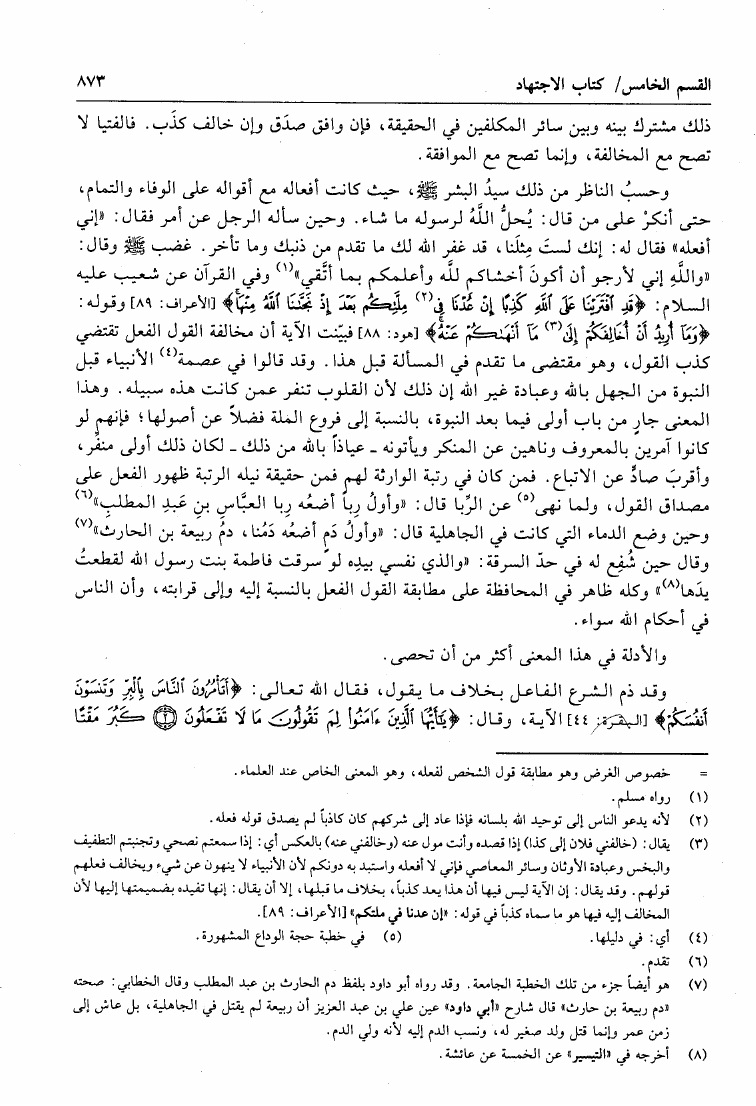 القسم الخامس/ كتاب الاجتهاد ٨٧٣
ذلك مشترك بينه وبين سائر المكلفين في الحقيقة، فإن وافق صدَق وإن خالف كذَب. فالفتيا لا
تصح مع المخالفة، وإنما تصح مع الموافقة.
وحسبُ الناظر من ذلك سيدُ البشر ﷺ، حيث كانت أفعاله مع أقواله على الوفاء والتمام،
حتى أنكرَ على من قال: يُحلُّ اللَّهُ لرسوله ما شاء. وحين سأله الرجل عن أمر فقال: «إني
أفعله» فقال له: إنك لستَ مِثلَنا، قد غفر الله لك ما تقدم من ذنبك وما تأخر. غضب ﷺ وقال:
«واللَّهِ إني لأرجو أن أكونَ أخشاكم للَّه وأعلمكم بما أتَّقي»(١) وفي القرآن عن شعيب عليه
السلام: ﴿قَدِ ٱفْتَرَيْنَا عَلَى ٱللَّهِ كَذِبًا إِنْ عُدْنَا فِى(٢) مِلَّتِكُم بَعْدَ إِذْ نَجَّىٰنَا ٱللَّهُ مِنْهَا﴾ [الأعراف: ٨٩] وقوله:
﴿وَمَآ أُرِيدُ أَنْ أُخَالِفَكُمْ إِلَىٰ(٣) مَآ أَنْهَىٰكُمْ عَنْهُ﴾ [هود: ٨٨] فبيّنت الآية أن مخالفة القول الفعل تقتضي
كذب القول، وهو مقتضى ما تقدم في المسألة قبل هذا. وقد قالوا في عصمة(٤) الأنبياء قبل
النبوة من الجهل بالله وعبادة غير الله إن ذلك لأن القلوب تنفر عمن كانت هذه سبيله. وهذا
المعنى جارٍ من باب أولى فيما بعد النبوة، بالنسبة إلى فروع الملة فضلاً عن أصولها؛ فإنهم لو
كانوا آمرين بالمعروف وناهين عن المنكر ويأتونه ـ عياذاً بالله من ذلك ـ لكان ذلك أولى منفّر،
وأقربَ صادٍّ عن الاتباع. فمن كان في رتبة الوارثة لهم فمن حقيقة نيله الرتبة ظهور الفعل على
مصداق القول، ولما نهى(٥) عن الرِّبا قال: «وأولُ رِباً أضعُه ربا العبَّاسِ بنِ عَبدِ المطلبِ»(٦)
وحين وضع الدماء التي كانت في الجاهلية قال: «وأول دَمٍ أضعُه دَمُنا، دمُ ربيعة بن الحارث»(٧)
وقال حين شُفِع له في حدّ السرقة: «والذي نفسي بيدِه لو سرقت فاطمة بنت رسول الله لقطعتُ
يدَها(٨)» وكله ظاهر في المحافظة على مطابقة القول الفعل بالنسبة إليه وإلى قرابته، وأن الناس
في أحكام الله سواء.
والأدلة في هذا المعنى أكثر من أن تحصى.
وقد ذم الشرع الفاعل بخلاف ما يقول، فقال الله تعالى: ﴿أَتَأْمُرُونَ ٱلنَّاسَ بِٱلْبِرِّ وَتَنسَوْنَ
أَنفُسَكُمْ﴾ [البقرة: ٤٤] الآية، وقال: ﴿يَٰٓأَيُّهَا ٱلَّذِينَ ءَامَنُوا۟ لِمَ تَقُولُونَ مَا لَا تَفْعَلُونَ ۝٢ كَبُرَ مَقْتًا
= خصوص الغرض وهو مطابقة قول الشخص لفعله، وهو المعنى الخاص عند العلماء.
(١) رواه مسلم.
(٢) لأنه يدعو الناس إلى توحيد الله بلسانه فإذا عاد إلى شركهم كان كاذباً لم يصدق قوله فعله.
(٣) يقال: (خالفني فلان إلى كذا) إذا قصده وأنت مول عنه (وخالفني عنه) بالعكس أي: إذا سمعتم نصحي وتجنبتم التطفيف
والبخس وعبادة الأوثان وسائر المعاصي فإني لا أفعله واستبد به دونكم لأن الأنبياء لا ينهون عن شيء ويخالف فعلهم
قولهم. وقد يقال: إن الآية ليس فيها أن هذا يعد كذباً، بخلاف ما قبلها، إلا أن يقال: إنها تفيده بضميمتها إليها لأن
المخالف إليه فيها هو ما سماه كذباً في قوله: «إن عدنا في ملتكم» [الأعراف: ٨٩].
(٤) أي: في دليلها. (٥) في خطبة حجة الوداع المشهورة.
(٦) تقدم.
(٧) هو أيضاً جزء من تلك الخطبة الجامعة. وقد رواه أبو داود بلفظ دم الحارث بن عبد المطلب وقال الخطابي: صحته
«دم ربيعة بن حارث» قال شارح «أبي داود» عين علي بن عبد العزيز أن ربيعة لم يقتل في الجاهلية، بل عاش إلى
زمن عمر وإنما قتل ولد صغير له، ونسب الدم إليه لأنه ولي الدم.
(٨) أخرجه في «التيسير» عن الخمسة عن عائشة.